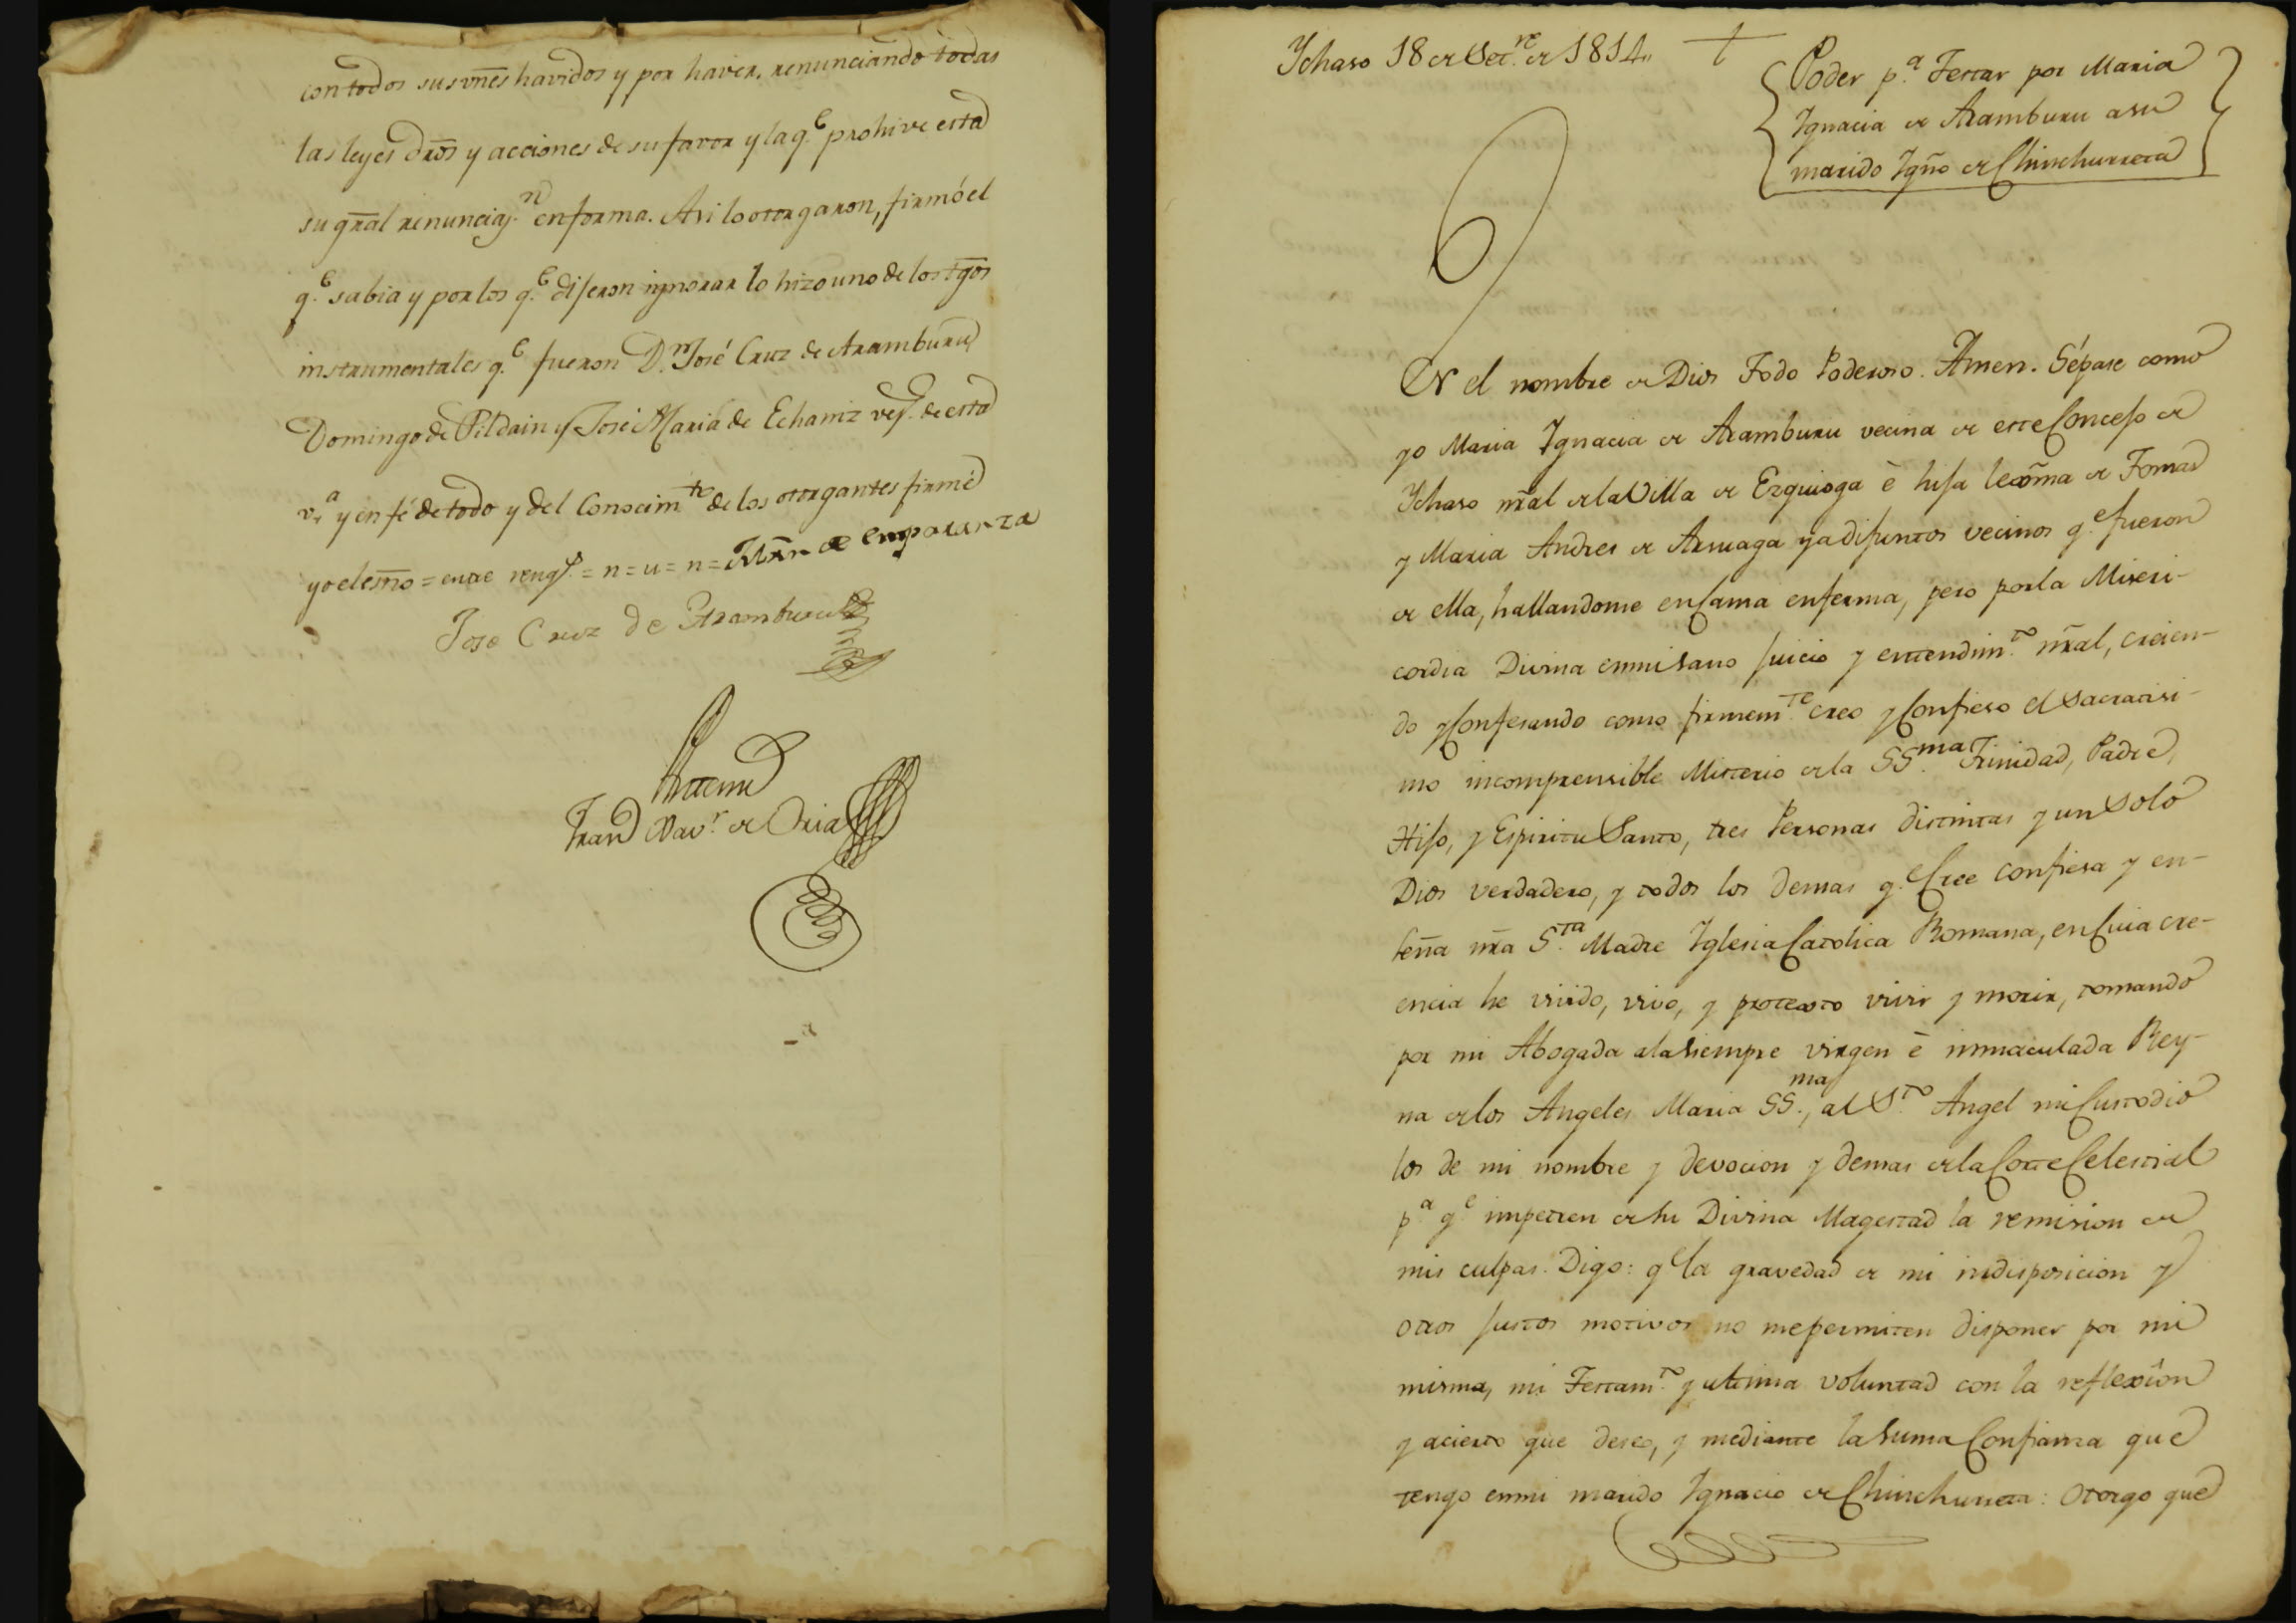 con todos sus vñes havidos y por haver, renunciando todas
las leyes dr̃os y acciones de su favor y la q.e prohive esta
su gr̃al renunciaz.n en forma. Asi lo otorgaron, firmó el
q.e sabia y por los q.e dijeron ignorar lo hizo uno de los tg̃os
instrumentales q.e fueron D.n José Cruz de Aramburu,
Domingo de Pildain y José Maria de Echaniz vez.s de esta
v.a y en fé de todo y del Conocim.to de los otorgantes firmé
yo el esñ̃o = entre reng.s = n = u = n = de emparanza
Jose Cruz de Aramburu
Antemi
Fran.co Xav.r de Oria
Ychaso 18 de Set.re de 1814 ,,
Poder p.a Testar por Maria
Ignacia de Aramburu a su
marido Igñо de Chinchurreta
En el nombre de Dios Todo Poderoso. Amen. Sépase como
yo Maria Ygnacia de Aramburu vecina de este Concejo de
Ychaso nr̃al de la Villa de Ezquioga è hija lexm̃a de Tomas
y Maria Andres de Arsuaga ya difuntos vecinos q.e fueron
de ella, hallandome en Cama enferma, pero por la Miseri-
cordia Divina en mi sano juicio y entendim.to nr̃al, creien-
do y Confesando como firmem.te creo y Confieso el Sacratisi-
mo incomprensible Misterio de la SS.ma Trinidad, Padre,
Hijo, y Espiritu Santo, tres Personas distintas y un Solo
Dios verdadero, y todos los demas q.e Cree confiesa y en-
seña nr̃a S.ta Madre Iglesia Catolica Romana, en Cuia cre-
encia he vivido, vivo, y protexto vivir y morir, tomando
por mi Abogada a la Siempre virgen è inmaculada Rey-
na de los Angeles Maria SS.ma, al S.to Angel mi Custodio
los de mi nombre y devocion y demas de la Corte Celestial
p.a q.e impetren de su Divina Magestad la remision de
mis culpas. Digo: q.e la gravedad de mi indisposicion y
otros justos motivos no me permiten disponer por mi
misma, mi Testam.to y ultima voluntad con la reflexîon
y acierto que deseo, y mediante la Suma Confianza que
tengo en mi marido Ignacio de Chinchurreta: Otorgo que